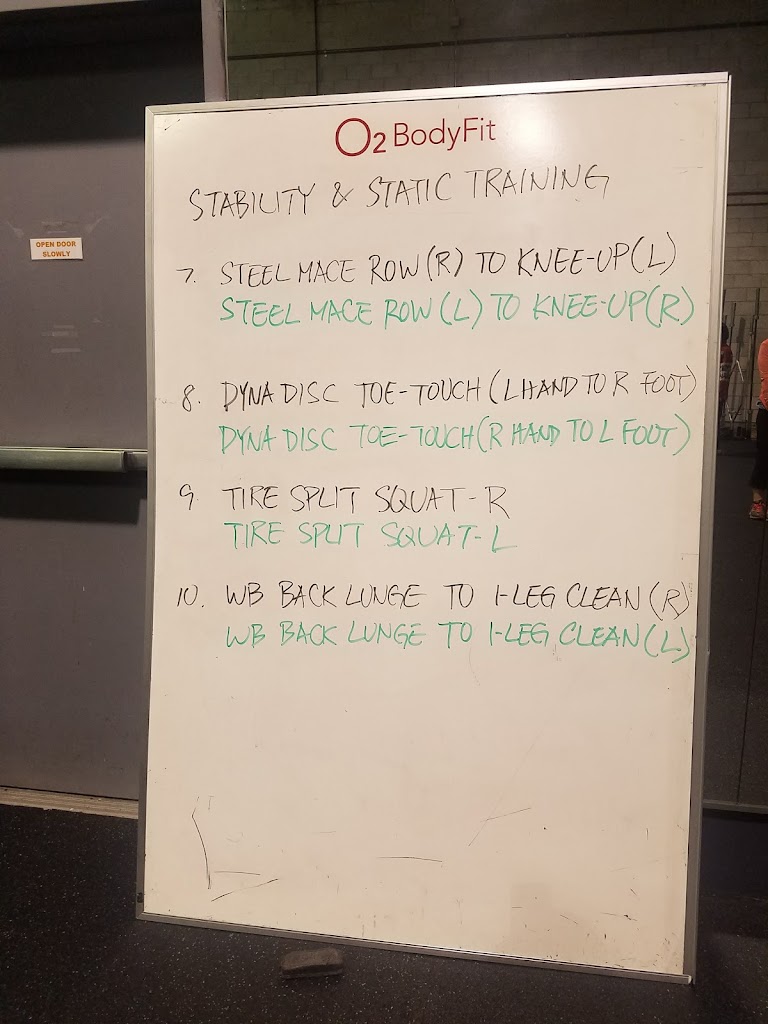 OPEN DOOR
SLOWLY
O2 BodyFit
STABILITY & STATIC TRAINING
7. STEEL MACE ROW (R) TO KNEE-UP (L)
STEEL MACE ROW (L) TO KNEE-UP (R)
8. DYNA DISC TOE-TOUCH (L HAND TO R FOOT)
DYNA DISC TOE-TOUCH (R HAND TO L FOOT)
9. TIRE SPLIT SQUAT - R
TIRE SPLIT SQUAT - L
10. WB BACK LUNGE TO 1-LEG CLEAN (R)
WB BACK LUNGE TO 1-LEG CLEAN (L)